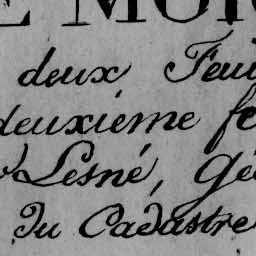 E MOR
deux Feui
deuxième fe
Lesné, Gé
Du Cadastre